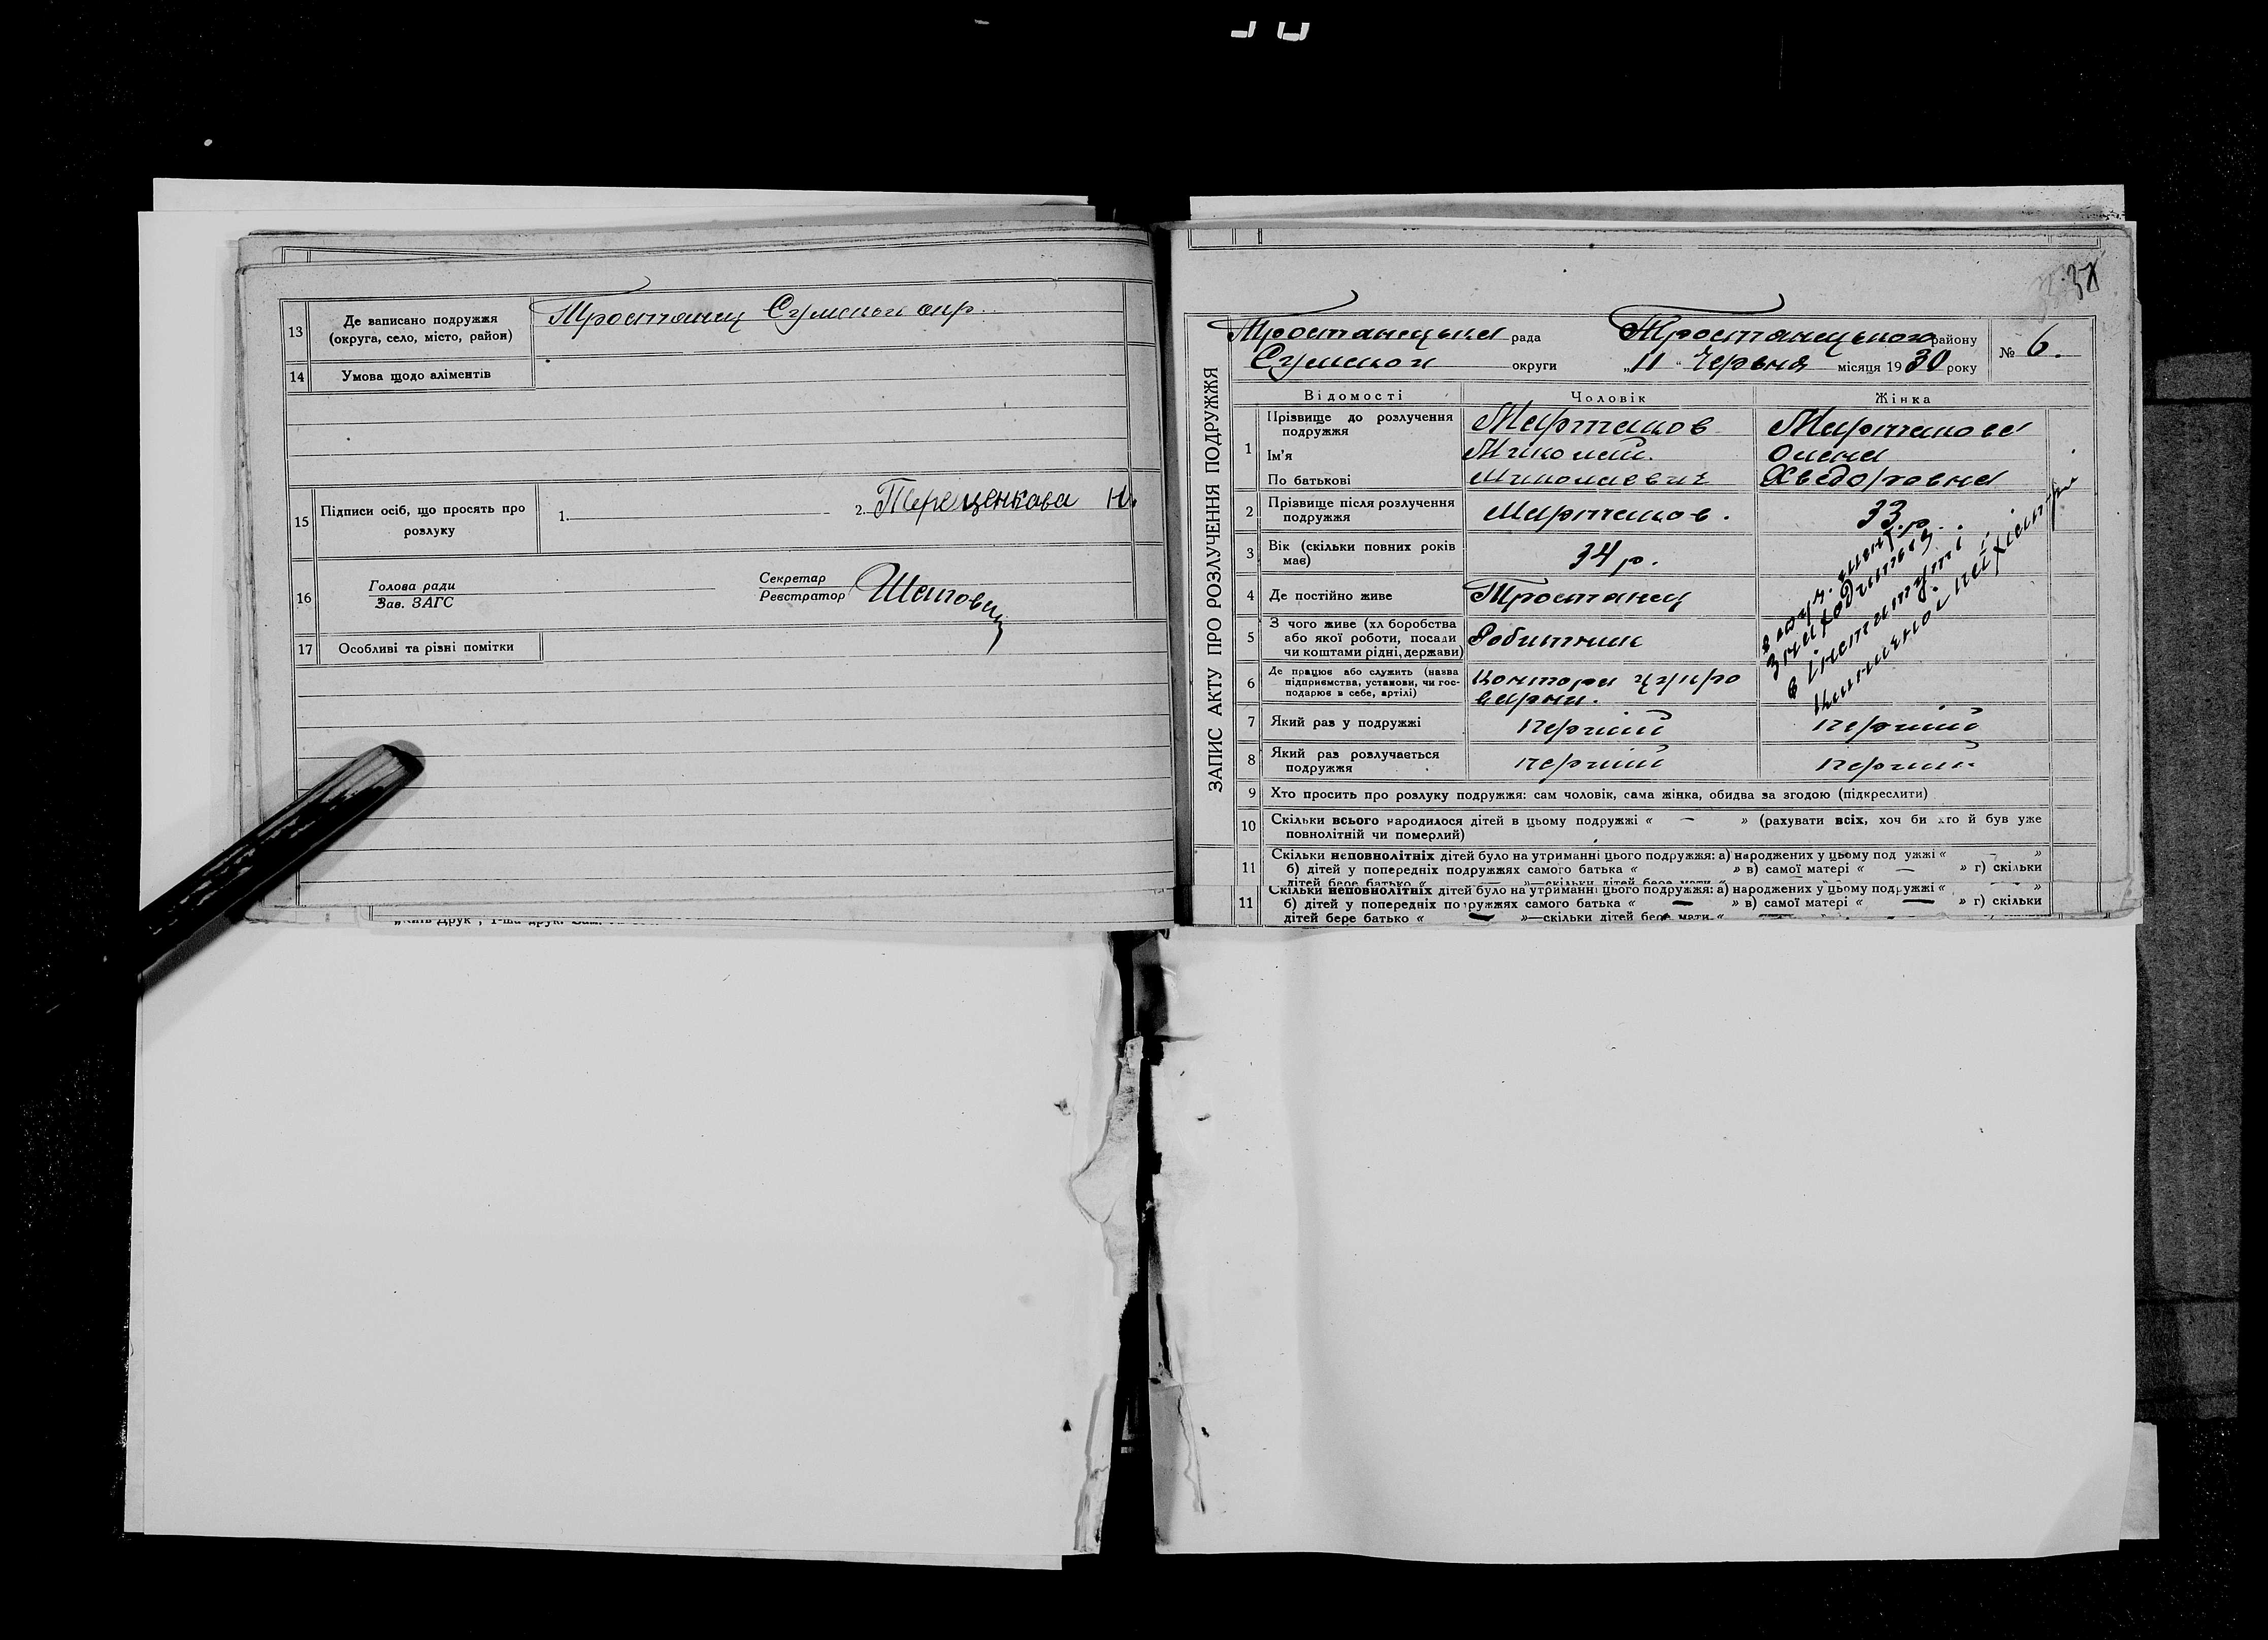 13 Де записано подружжя (округа, село, місто, район) Тростянец Сумської окр.
14 Умова щодо аліментів
15 Підписи осіб, що просять про розлуку 1. 2. Терещенкова Н.
16 Голова ради
Зав. ЗАГС
Секретар
Реєстратор
17 Особливі та різні помітки
ЗАПИС АКТУ ПРО РОЗЛУЧЕННЯ ПОДРУЖЖЯ
Тростянецька рада Тростянецького району № 6.
Сумської округи „11“ Червня місяця 1930 року
Відомості Чоловік Жінка
1 Прізвище до розлучення подружжя Мартаков Мартакова
Ім'я Миколай. Олена
По батькові Миколаевич Хведоровна
2 Прізвище після розлучення подружжя Мартаков. 33 р.
3 Вік (скільки повних років має) 34 р.
4 Де постійно живе Тростянец
5 З чого живе (хліборобства або якої роботи, посади чи коштами рідні, держави) Робитник
6 Де працює або служить (назва підприємства, установи, чи господарює в себе, артілі) контора цукроварни.
знаходиться
в інституті
7 Який раз у подружжі перший перший
8 Який раз розлучається подружжя перший перший
9 Хто просить про розлуку подружжя: сам чоловік, сама жінка, обидва за згодою (підкреслити)
10 Скільки всього народилося дітей в цьому подружжі « — » (рахувати всіх, хоч би хто й був уже
повнолітній чи померлий)
11 Скільки неповнолітніх дітей було на утриманні цього подружжя: а) народжених у цьому подружжі « — »
б) дітей у попередніх подружжях самого батька « » в) самої матері « — » г) скільки
дітей бере батько « — »—скільки дітей бере мати «
11 Скільки неповнолітніх дітей було на утриманні цього подружжя: а) народжених у цьому подружжі « »
б) дітей у попередніх подружжях самого батька « — » в) самої матері « — » г) скільки
дітей бере батько « — »—скільки дітей бере мати «